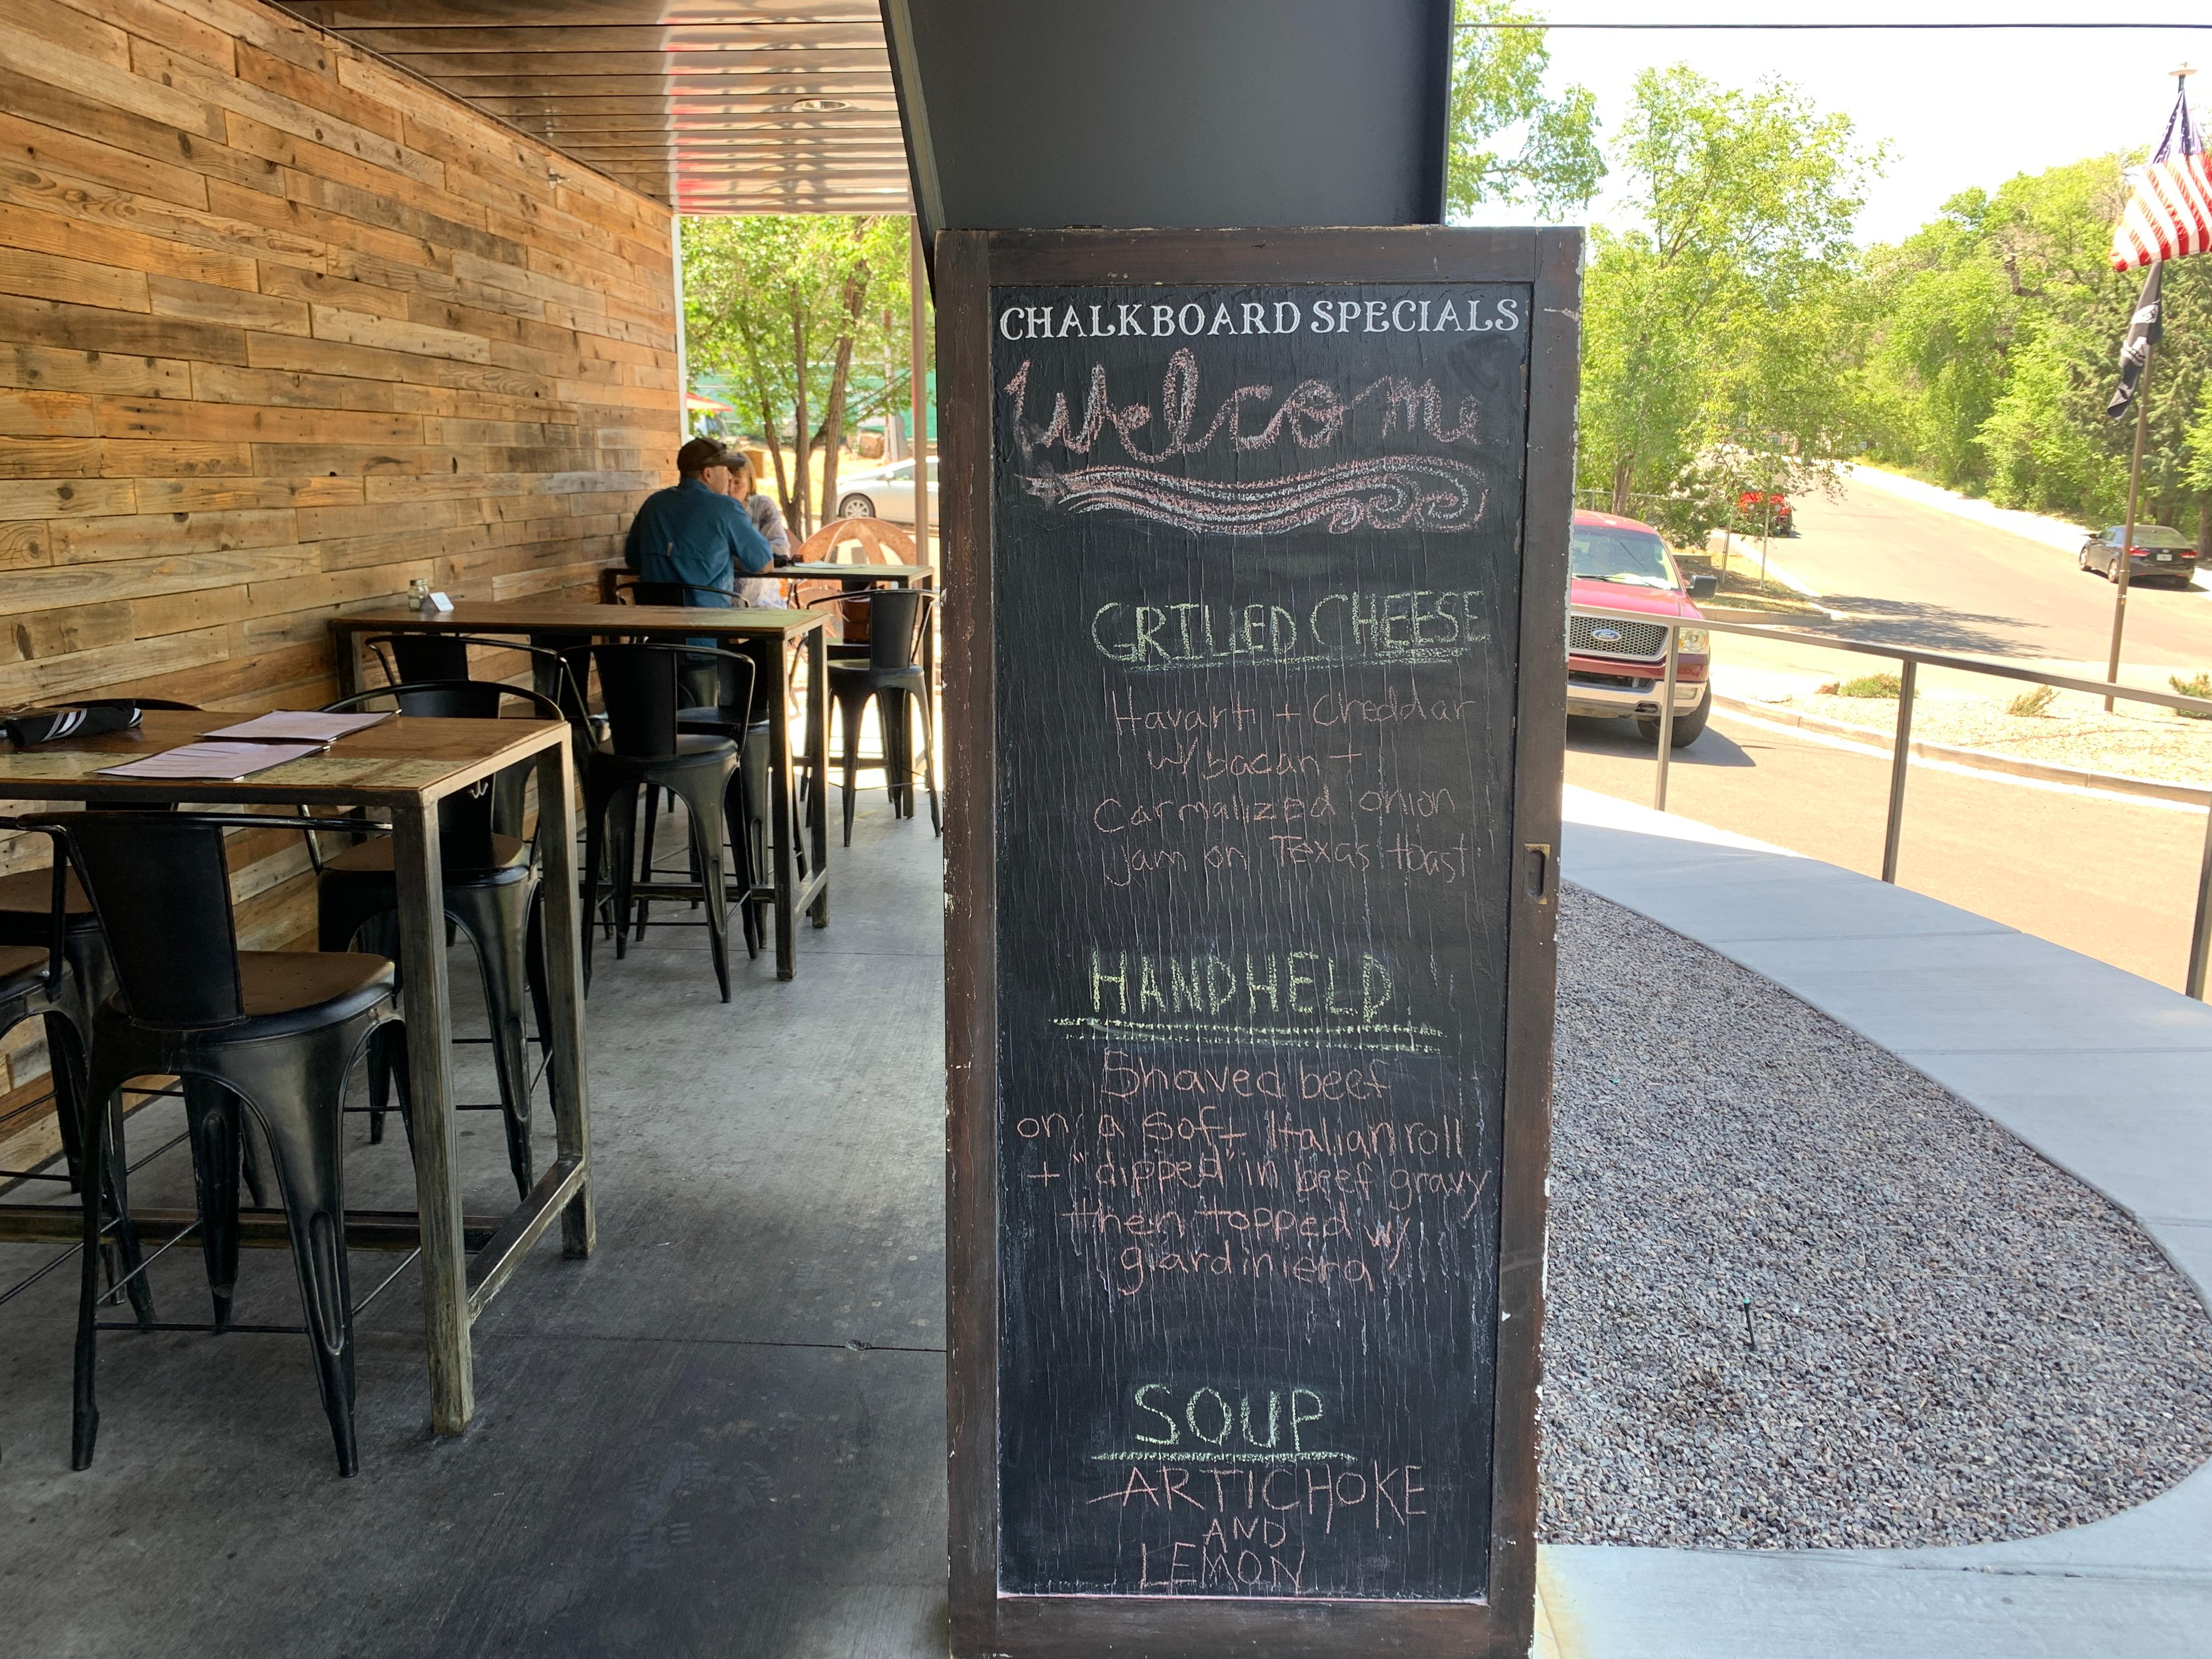 CHALKBOARD SPECIALS
Welcome
GRILLED CHEESE
Havarti + Cheddar
w/ bacan +
Carmalized onion
Jam on Texas toast
HANDHELD
Shaved beef
on a soft Italian roll
+ "dipped" in beef gravy
then topped w/
giardiniera
SOUP
ARTICHOKE
AND
LEMON
Ford